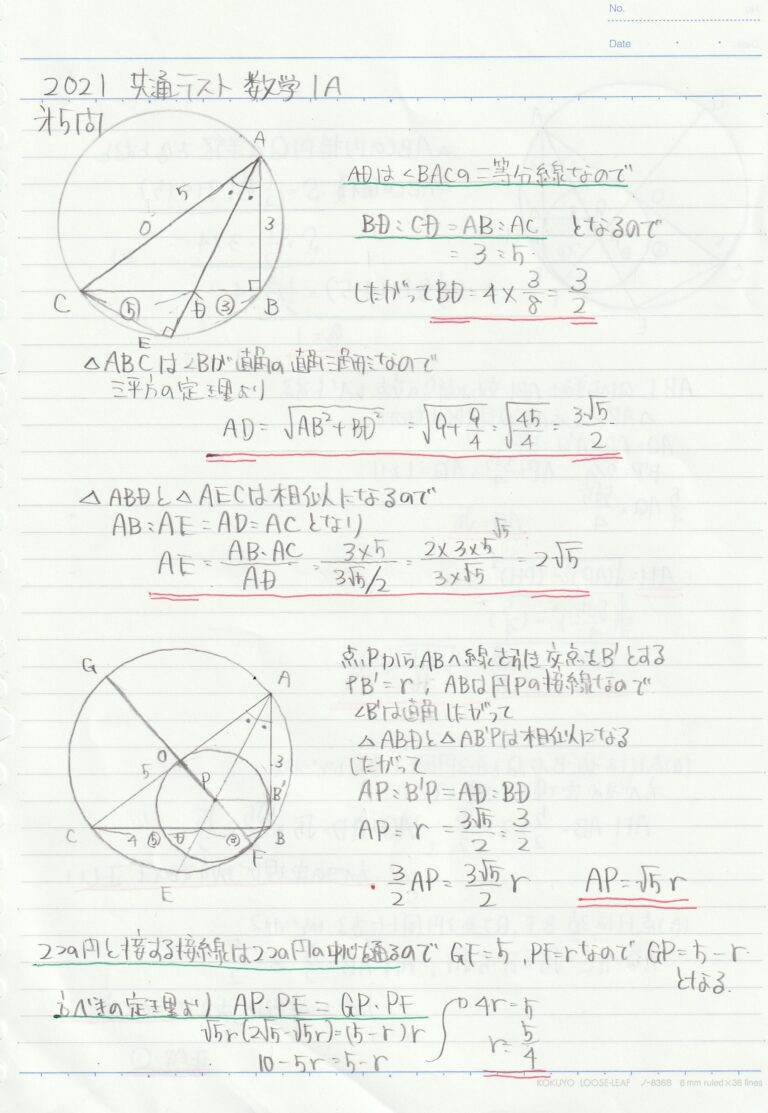 No.
Date
2021 共通テスト 数学1A
第5問
A
5
3
O
C
⑤
D
③
B
E
ADは∠BACの二等分線なので
BD:CD=AB:AC となるので
=3:5
したがってBD=4×3/8=3/2
△ABCは∠Bが直角の直角三角形なので
三平方の定理より
AD=√(AB²+BD²)=√(9+9/4)=√(45/4)=3√5/2
△ABDと△AECは相似になるので
AB:AE=AD=ACとなり
AE=AB・AC/AD=3×5/(3√5/2)=2×3×5/(3×√5)=2√5
√5
G
A
O
5
P
3
B'
C
4
⑤
D
③
B
F
E
点PからABへ線を引き交点をB'とする
PB'=r, ABは円Pの接線なので
∠B'は直角したがって
△ABDと△AB'Pは相似になる
したがって
AP:B'P=AD=BD
AP=r=3√5/2:3/2
3/2 AP=3√5/2 r
AP=√5r
2つの円と接する接線は2つの円の中心を通るので GF=5, PF=rなので GP=5-r
となる.
方べきの定理より AP・PE=GP・PF
√5r(2√5-√5r)=(5-r)r
10-5r=5-r
4r=5
r=5/4
KOKUYO LOOSE-LEAF ノ-836B 6 mm ruled×36 lines